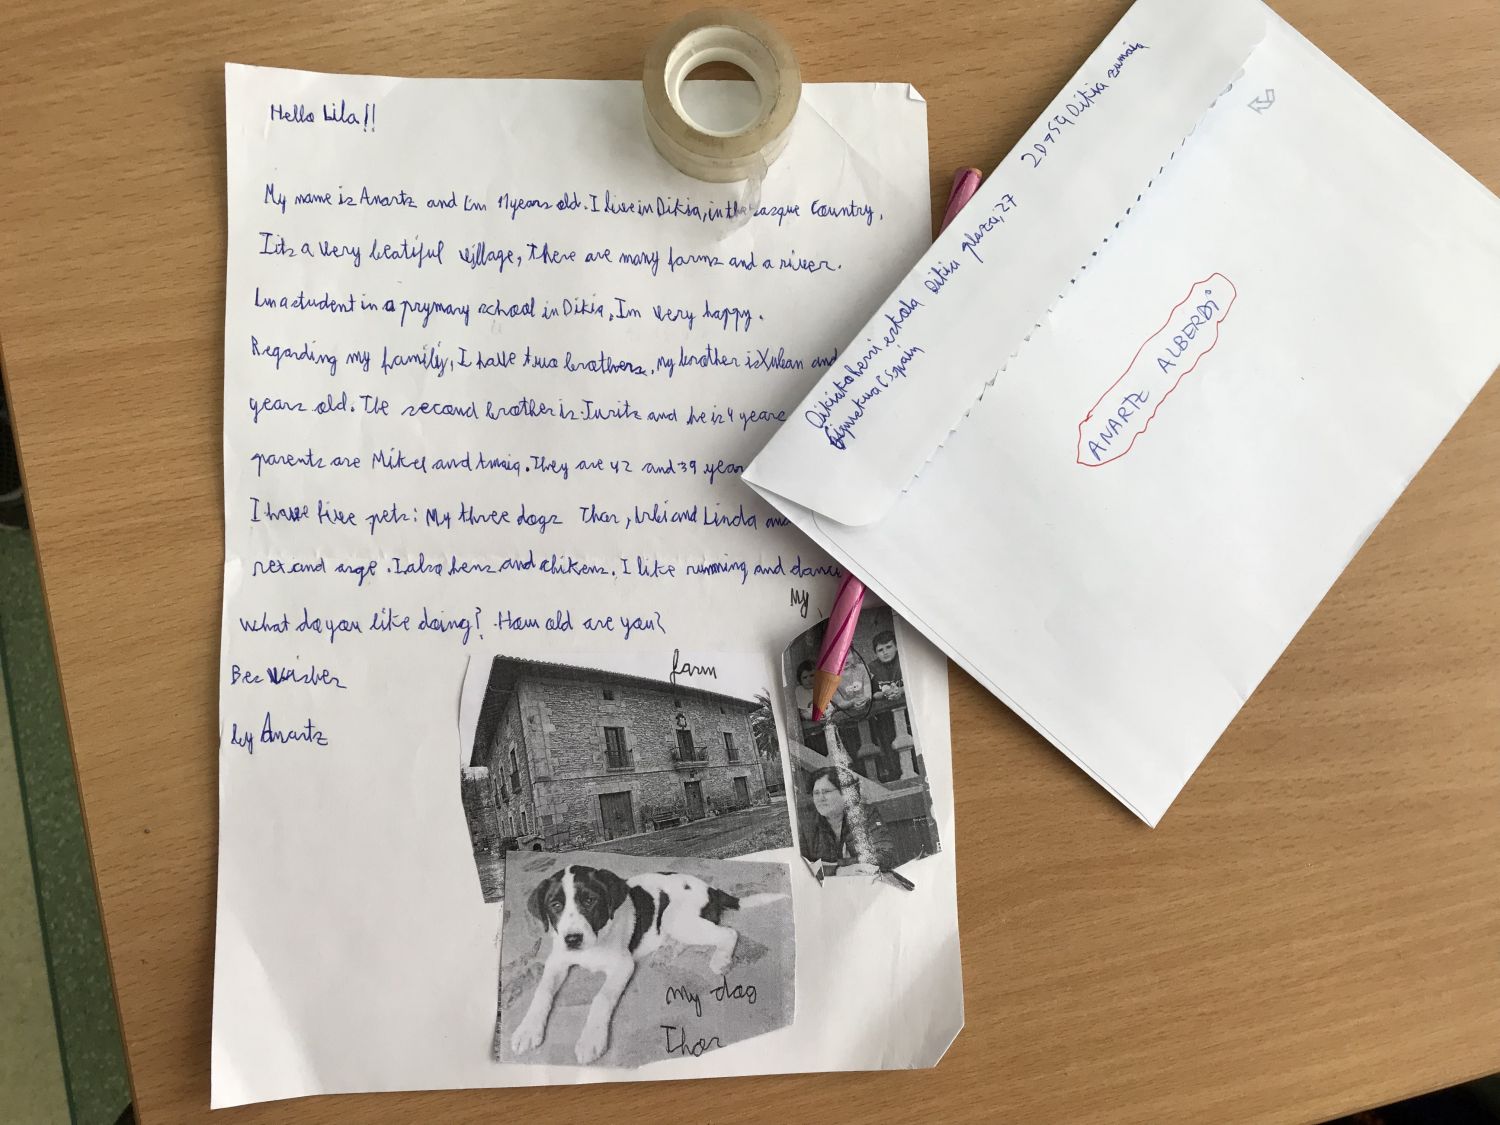 Hello Lila!!
My name is Anartz and I'm 11 years old. I live in Oikia, in the Basque Country.
Its a very beatiful village, there are many farms and a river.
I'm a student in a prymary school in Oikia, I'm very happy.
Regarding my family, I have two brothers, my brother is Xuban and
years old. The second brother is Iuritz and he is 4 years
parents are Mikel and Amaia. They are 42 and 39 year
I have five pets: My three dogs Thor, and Linda and
rex and argo. I also hens and chikens. I like running and dance
What do you like doing? How old are you?
Bes wishes
by Anartz
My
farm
My dog
Thor
Oikiako herri eskola Oikia plaza, 27 20759 Oikia Zumaia
Gipuzkoa (Spain
ANARTZ ALBERDI